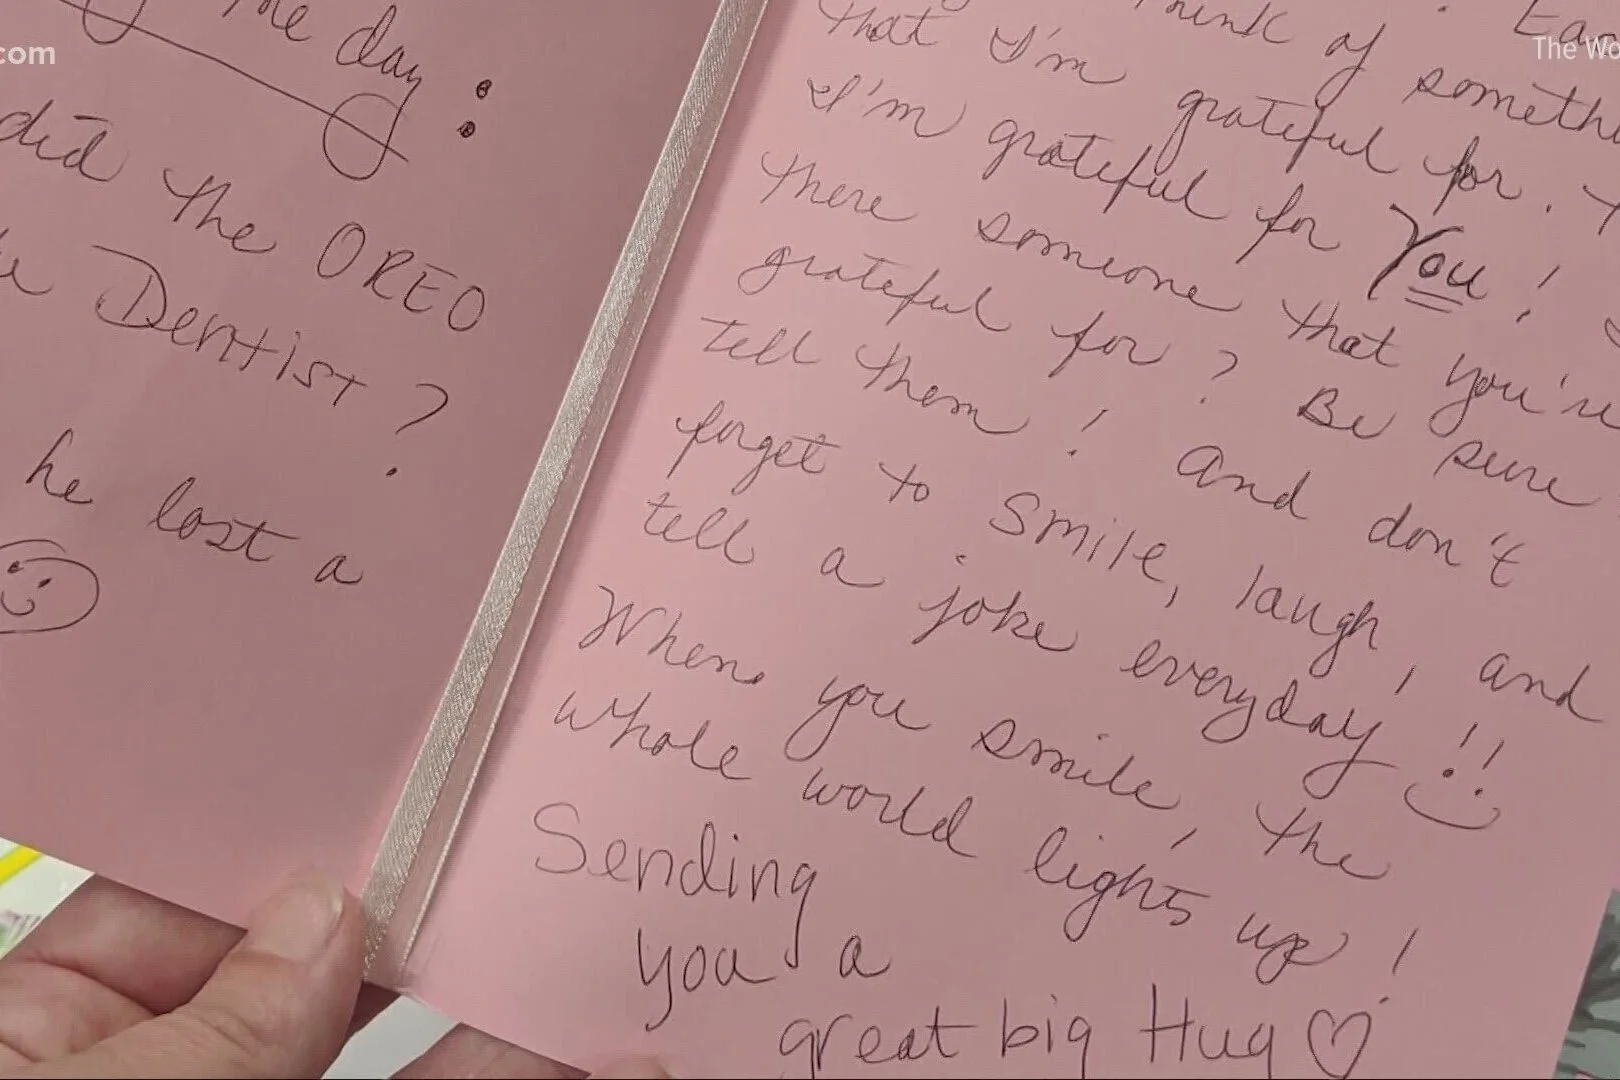 .com
the day:
did the OREO
Dentist?
he lost a
The Wo
think of
that I'm
something
grateful for.
I'm grateful for You!
there someone that you're
grateful for? Be sure
tell them! And don't
forget to smile, laugh, and
tell a joke everyday!!
When you smile, the
whole world lights up!
Sending
you a
great big Hug